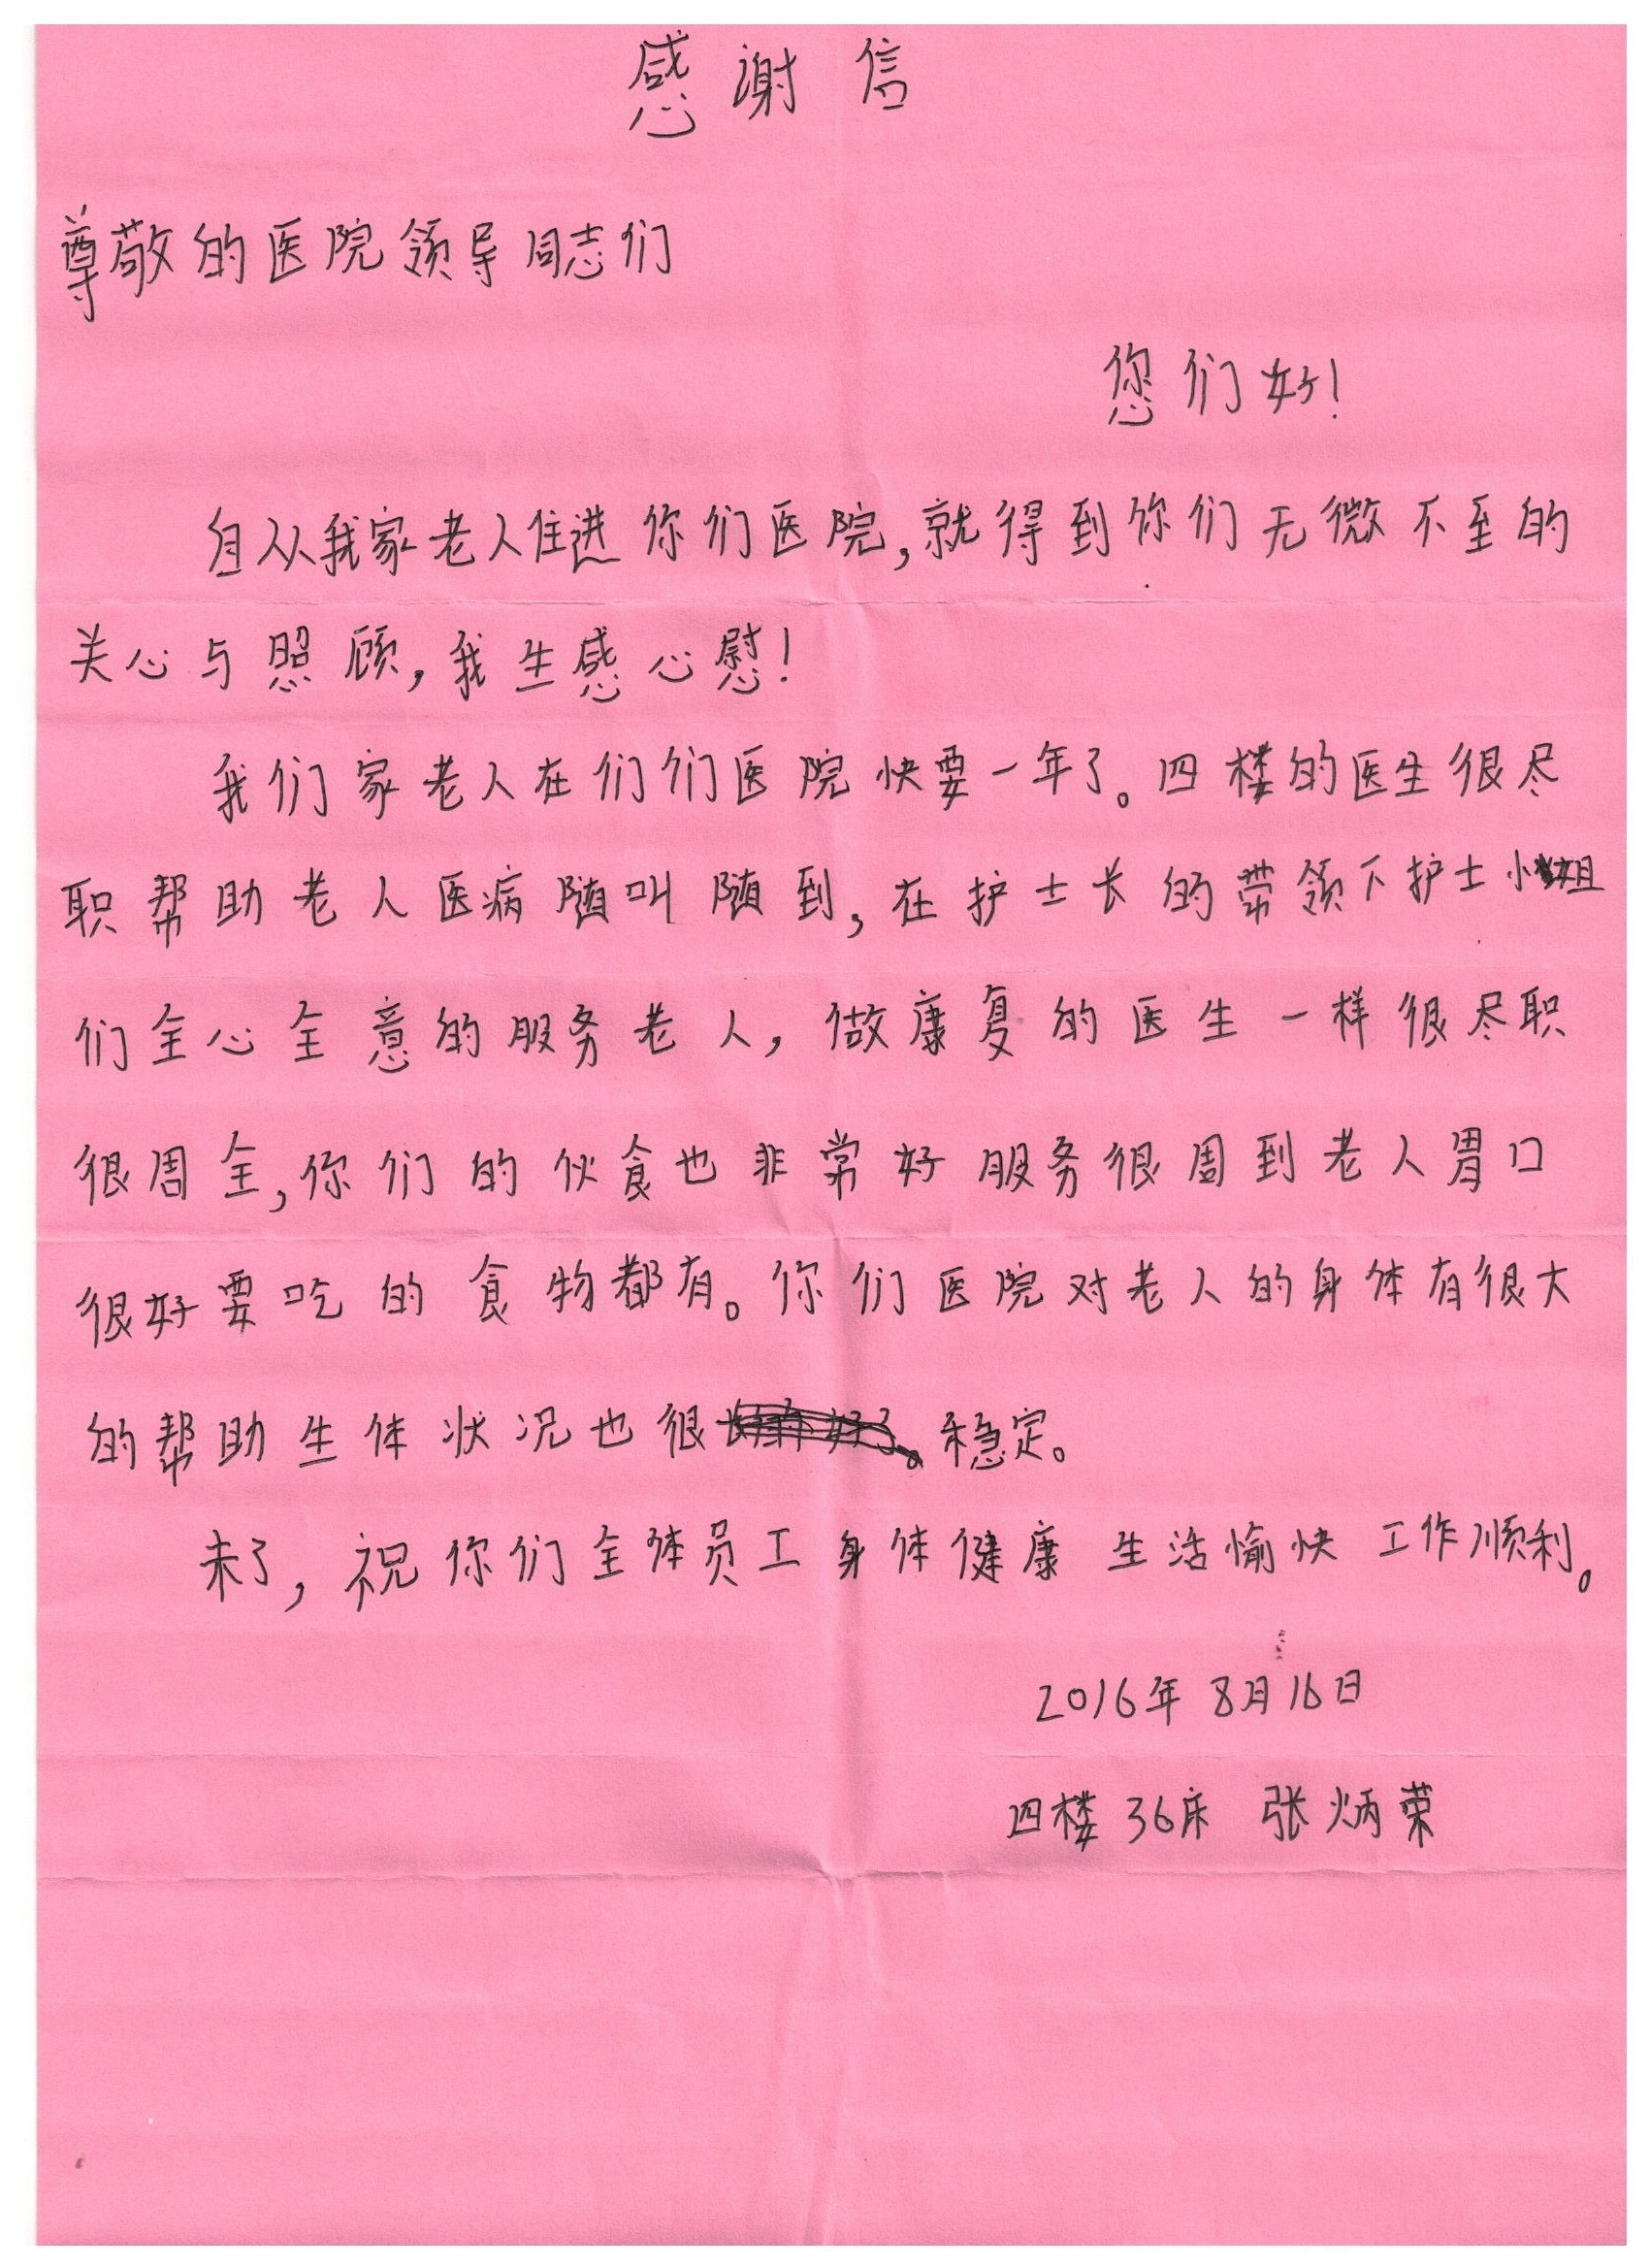 感谢信
尊敬的医院领导同志们
您们好!
自从我家老人住进你们医院,就得到你们无微不至的
关心与照顾,我生感心慰!
我们家老人在们们医院快要一年了。四楼的医生很尽
职帮助老人医病随叫随到,在护士长的带领下护士小姐
们全心全意的服务老人,做康复的医生一样很尽职
很周全,你们的伙食也非常好服务很周到老人胃口
很好要吃的食物都有。你们医院对老人的身体有很大
的帮助生体状况也很稳定。
末了,祝你们全体员工身体健康 生活愉快 工作顺利。
2016年8月16日
四楼36床 张炳荣